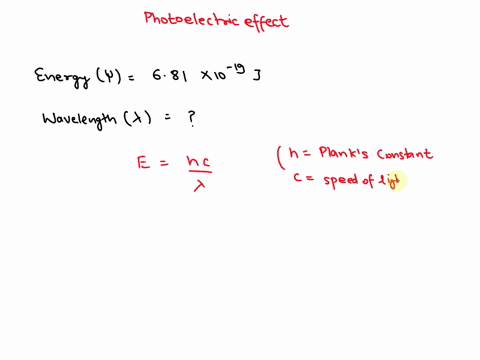 Photoelectric effect
Energy (Ψ) = 6.81 × 10⁻¹⁹ J
Wavelength (λ) = ?
E = hc / λ
( h = Plank's Constant
c = speed of light